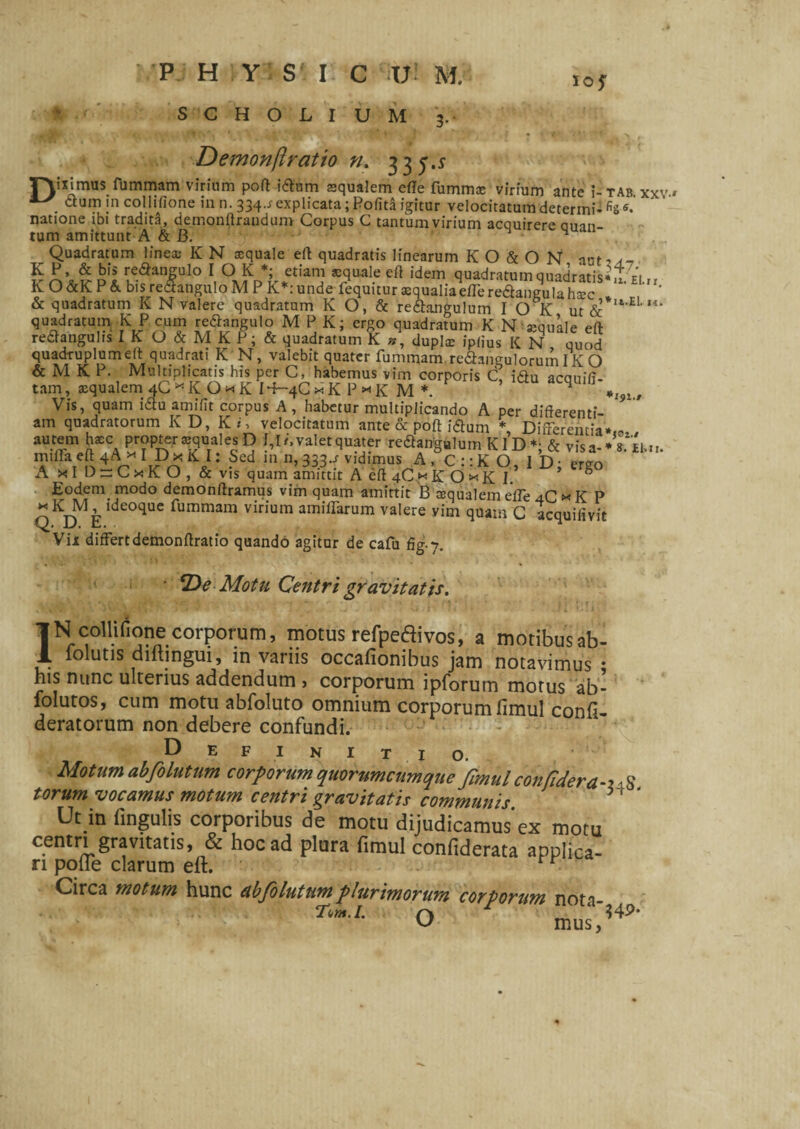 PHYSICUM. 105
SCHOLIUM 3.
Demonstratio n. 335.s
Diximus summam virium post ictum æqualem esse summæ virium ante i- TAB. XXV.
ctum in collisione in n. 334.s explicata; Positâ igitur velocitatum determi- fig 6.
natione ibi traditâ, demonstrandum Corpus C tantum virium acquirere quan-
tum amittunt A & B.
Quadratum lineæ K N æquale est quadratis linearum K O & O N, aut 347.
K P, & bis rectangulo I O K *; etiam æquale est idem quadratum quadratis * 12. El. II.
K O & K P & bis rectangulo M P K*: unde sequitur æqualia esse rectangula hæc,
& quadratum K N valere quadratum K O, & rectangulum I O K, ut & * 12. El. II.
quadratum K P cum rectangulo M P K; ergo quadratum K N æquale est
rectangulis I K O & M K P; & quadratum K n, duplæ ipsius K N, quod
quadruplum est quadrati K N, valebit quater summam rectangulorum I K O
& M K P. Multiplicatis his per C, habemus vim corporis C, ictu acquisi-
tam, æqualem 4C × K O × K I + 4C × K P × K M *. *191.s
Vis, quam ictu amisit corpus A, habetur multiplicando A per differenti-
am quadratorum K D, K i, velocitatum ante & post ictum *, Differentia *102.s
autem hæc propter æquales D I, I i, valet quater rectangulum K I D *; & vis a- * 8. El. II.
missa est 4A × I D × K I: Sed in n, 333.s vidimus A, C :: K O, I D; ergo
A × I D = C × K O, & vis quam amittit A est 4C × K O × K I.
Eodem modo demonstramus vim quam amittit B æqualem esse 4C × K P
× K M, ideoque summam virium amissarum valere vim quam C acquisivit
Q. D. E.
Vix differt demonstratio quando agitur de casu fig. 7.
De Motu Centri gravitatis.
IN collisione corporum, motus respectivos, a motibus ab-
solutis distingui, in variis occasionibus jam notavimus;
his nunc ulterius addendum, corporum ipsorum motus ab-
solutos, cum motu absoluto omnium corporum simul consi-
deratorum non debere confundi.
DEFINITIO.
Motum absolutum corporum quorumcumque simul considera- 348.
torum vocamus motum centri gravitatis communis.
Ut in singulis corporibus de motu dijudicamus ex motu
centri gravitatis, & hoc ad plura simul considerata applica-
ri posse clarum est.
Circa motum hunc absolutum plurimorum corporum nota- 349.
Tom. I. O mus,